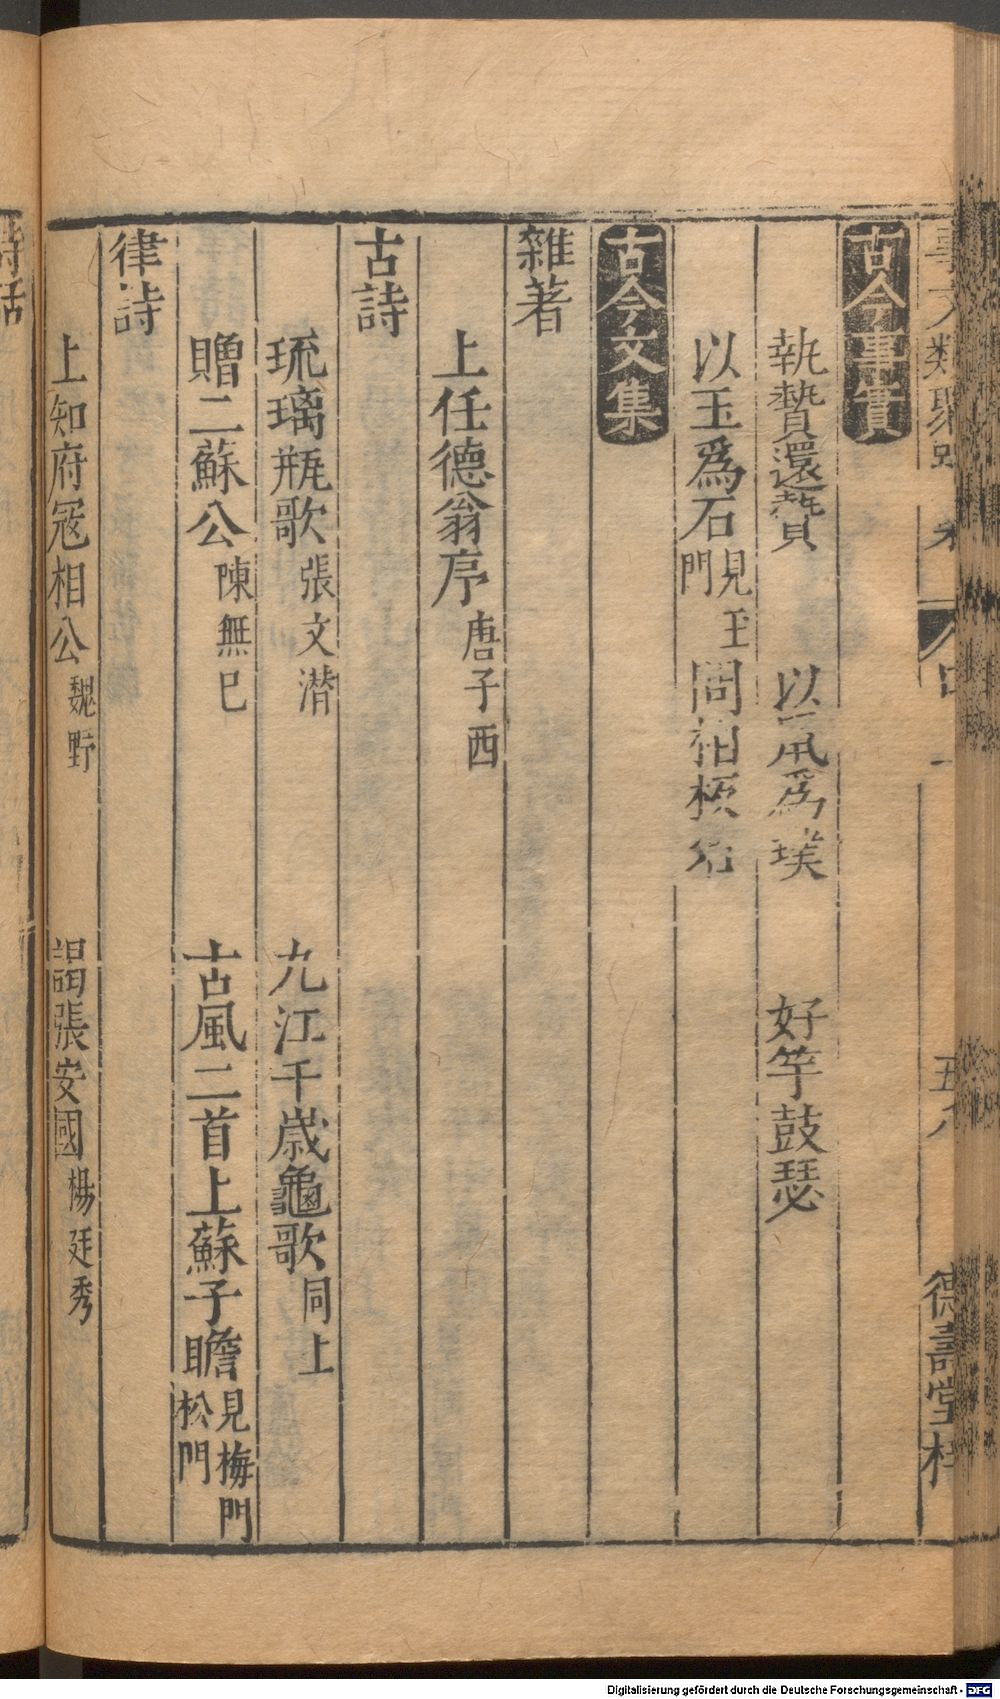 古今事實
執贄還贄 以鼠爲璞 好竽鼓瑟
以玉爲石見玉門
古今文集
雜著
上任德翁序唐子西
古詩
琉璃瓶歌張文潛 九江千歲龜歌同上
贈二蘇公陳無已 古風二首上蘇子瞻見梅門松門
律詩
上知府冦相公魏野 謁張安國楊廷秀
詩話
德壽堂梓
Digitalisierung gefördert durch die Deutsche Forschungsgemeinschaft - DFG